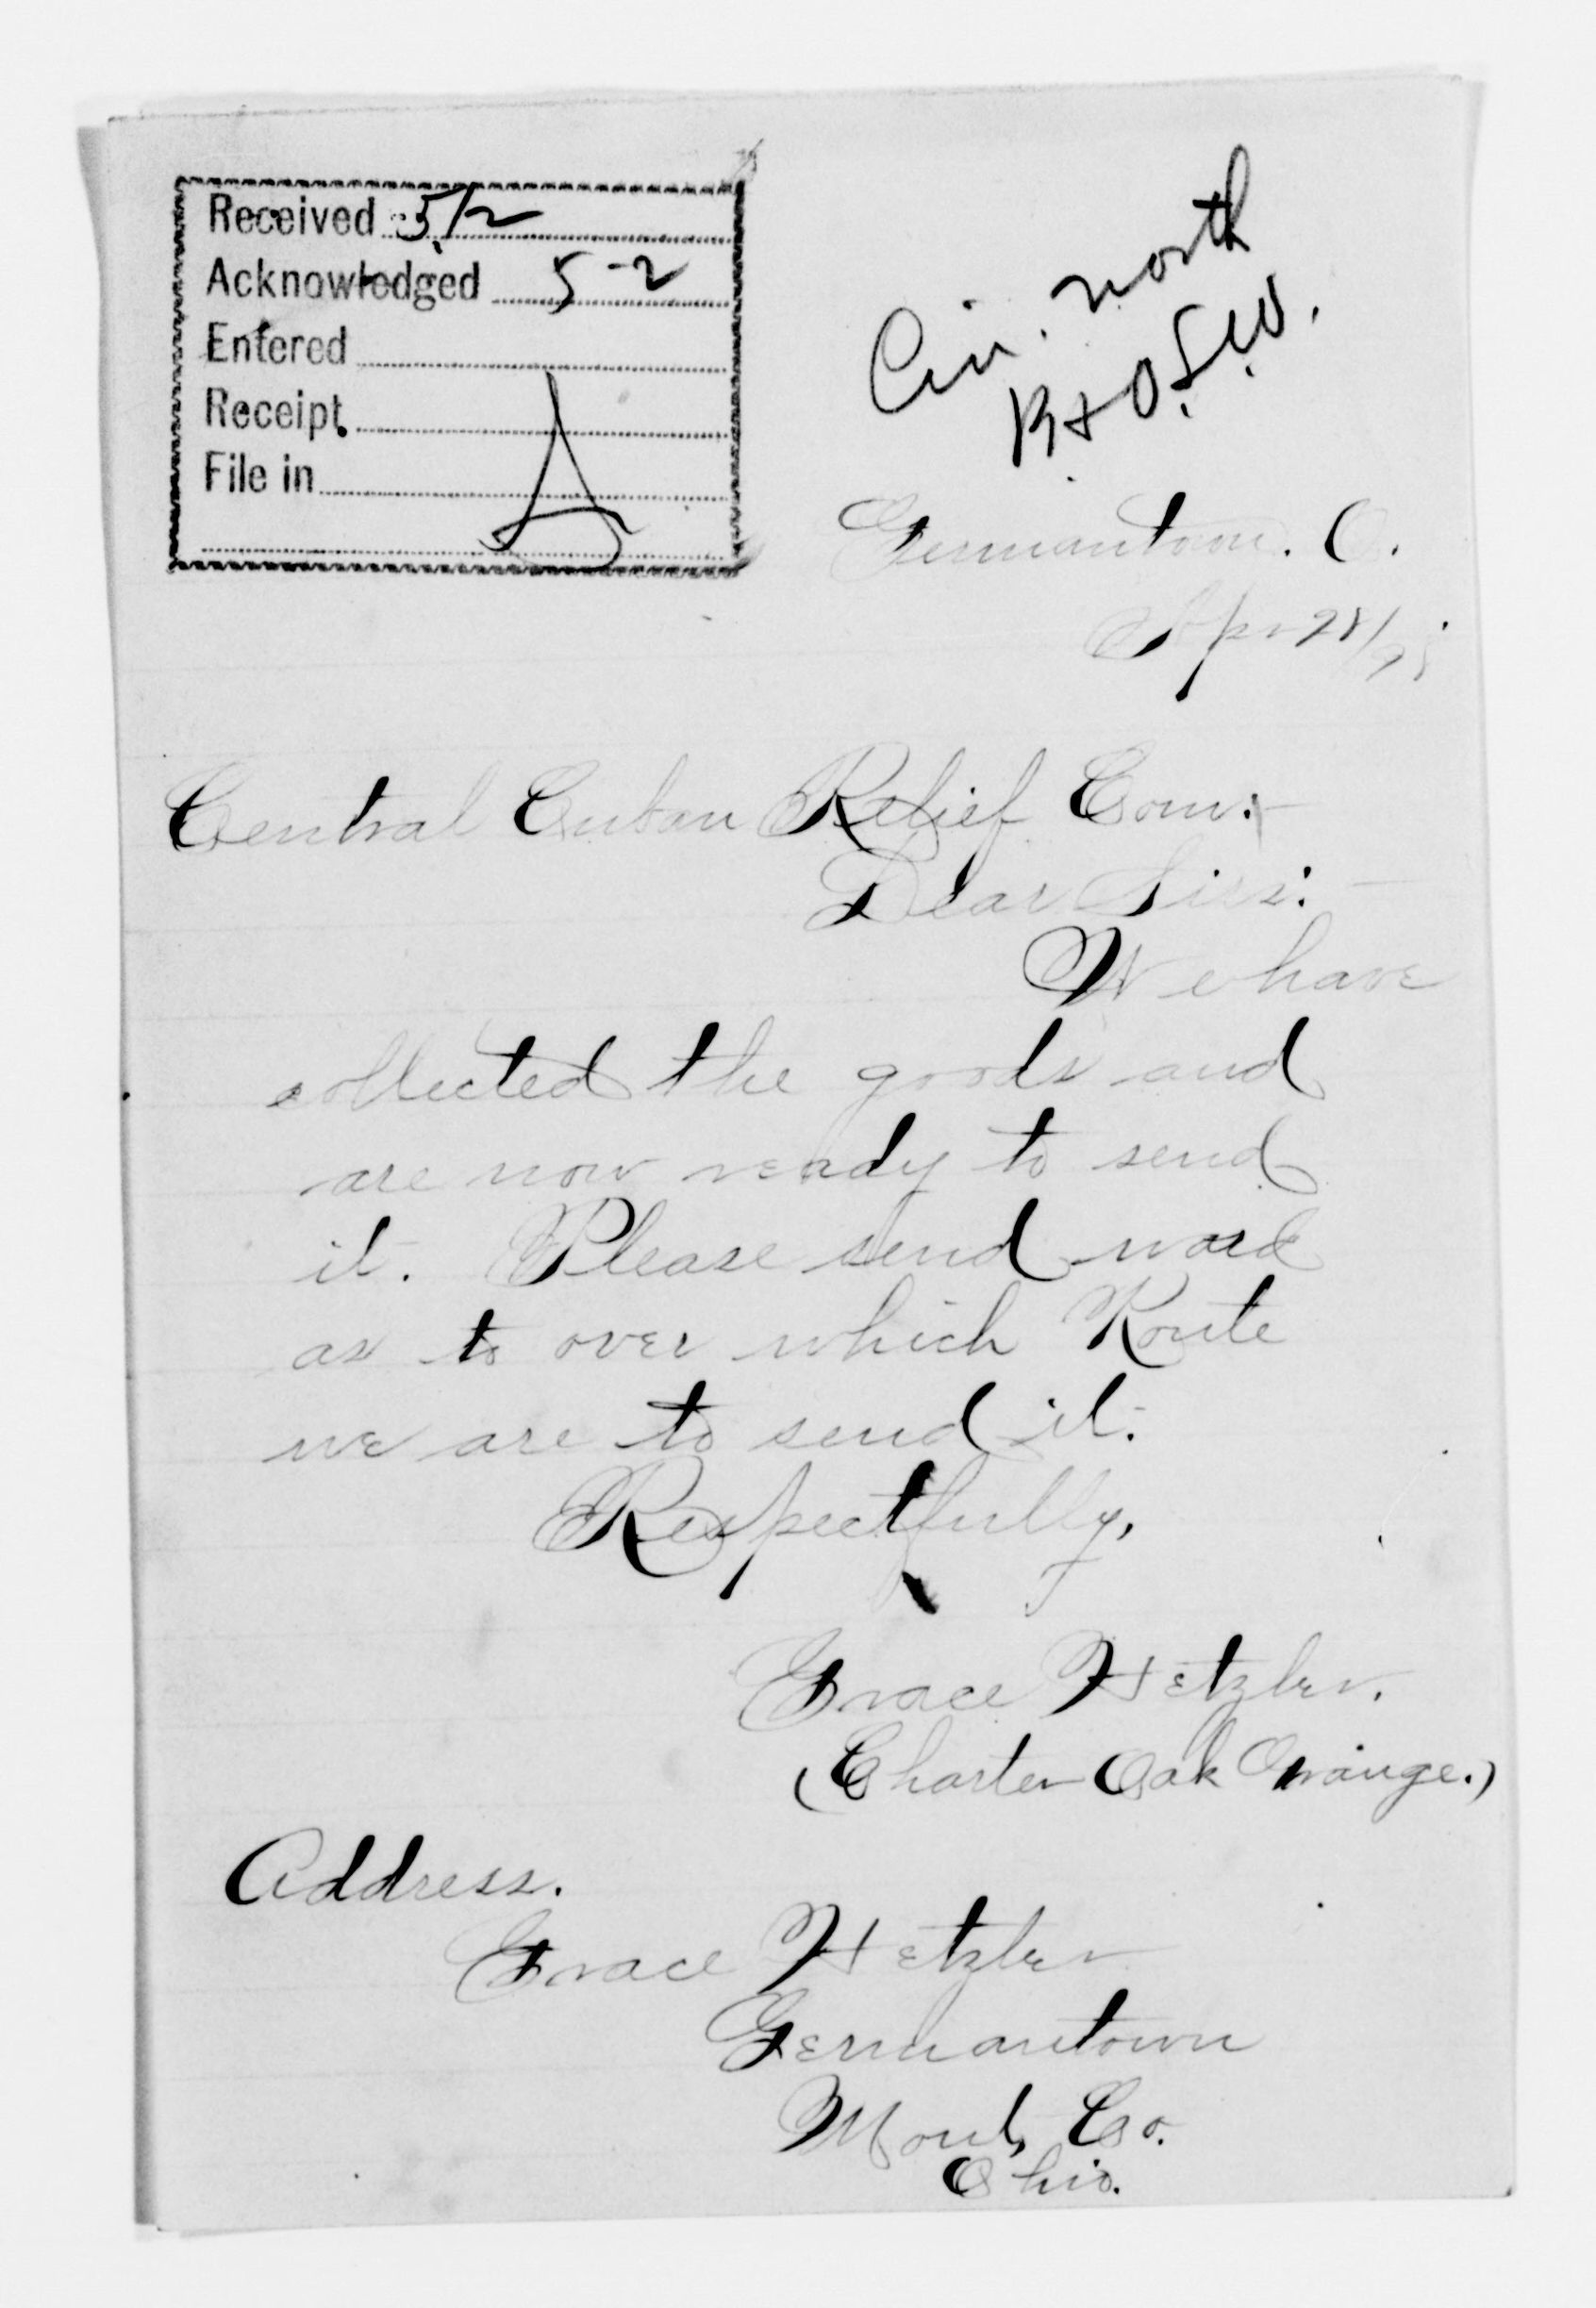 Received 5/2
Acknowledged 5-2
Entered
Receipt
File in
Cin. north
B + O. S. W.
Germantown. O.
Apr 28/98
Central Cuban Relief Com:-
Dear Sirs:-
We have
collected the goods and
are now ready to send
it. Please send word
as to over which Route
we are to send it.
Respectfully,
Grace Hetzler.
(Charter Oak Grange.)
Address.
Grace Hetzler
Germantown
Mont, Co.
Ohio.